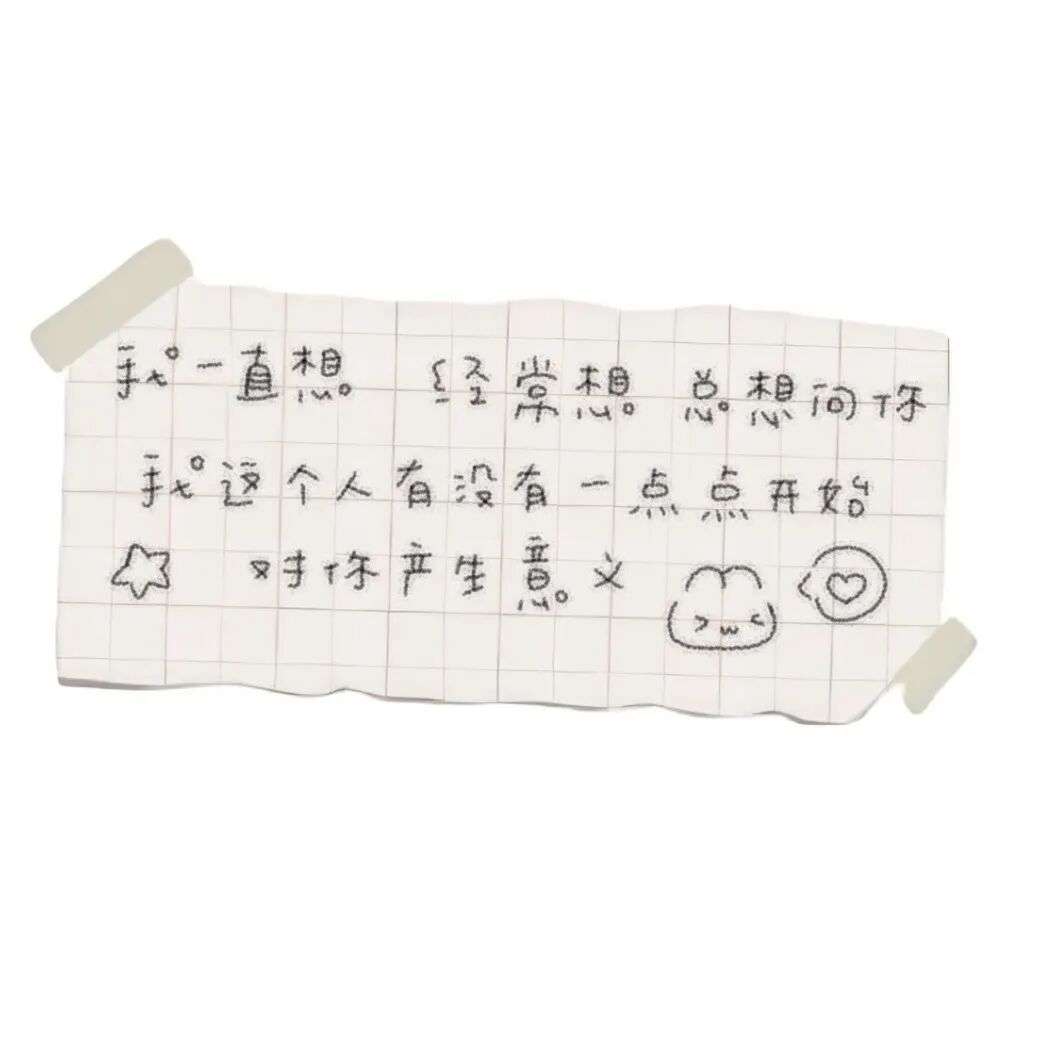 我一直想 经常想 总想问你
我这个人有没有一点点开始
对你产生意义